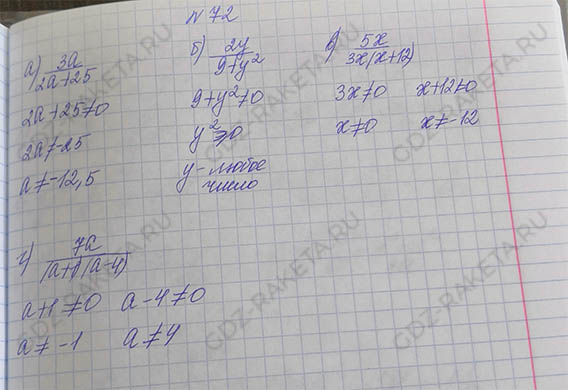 № 72
а) 3a / 2a+25
2a+25≠0
2a≠-25
a≠-12,5
б) 2y / 9+y²
9+y²≠0
y²⩾0
y - любое
число
в) 5x / 3x(x+12)
3x≠0 x+12≠0
x≠0 x≠-12
г) 7a / (a+1)(a-4)
a+1≠0 a-4≠0
a≠-1 a≠4
GDZ-RAKETA.RU